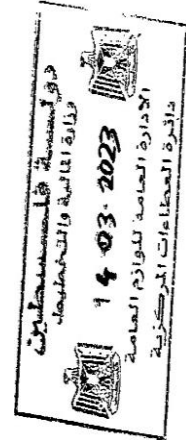 دولة فلسطين
وزارة المالية والتخطيط
14 -03- 2023
الإدارة العامة للوازم العامة
دائرة العطاءات المركزية